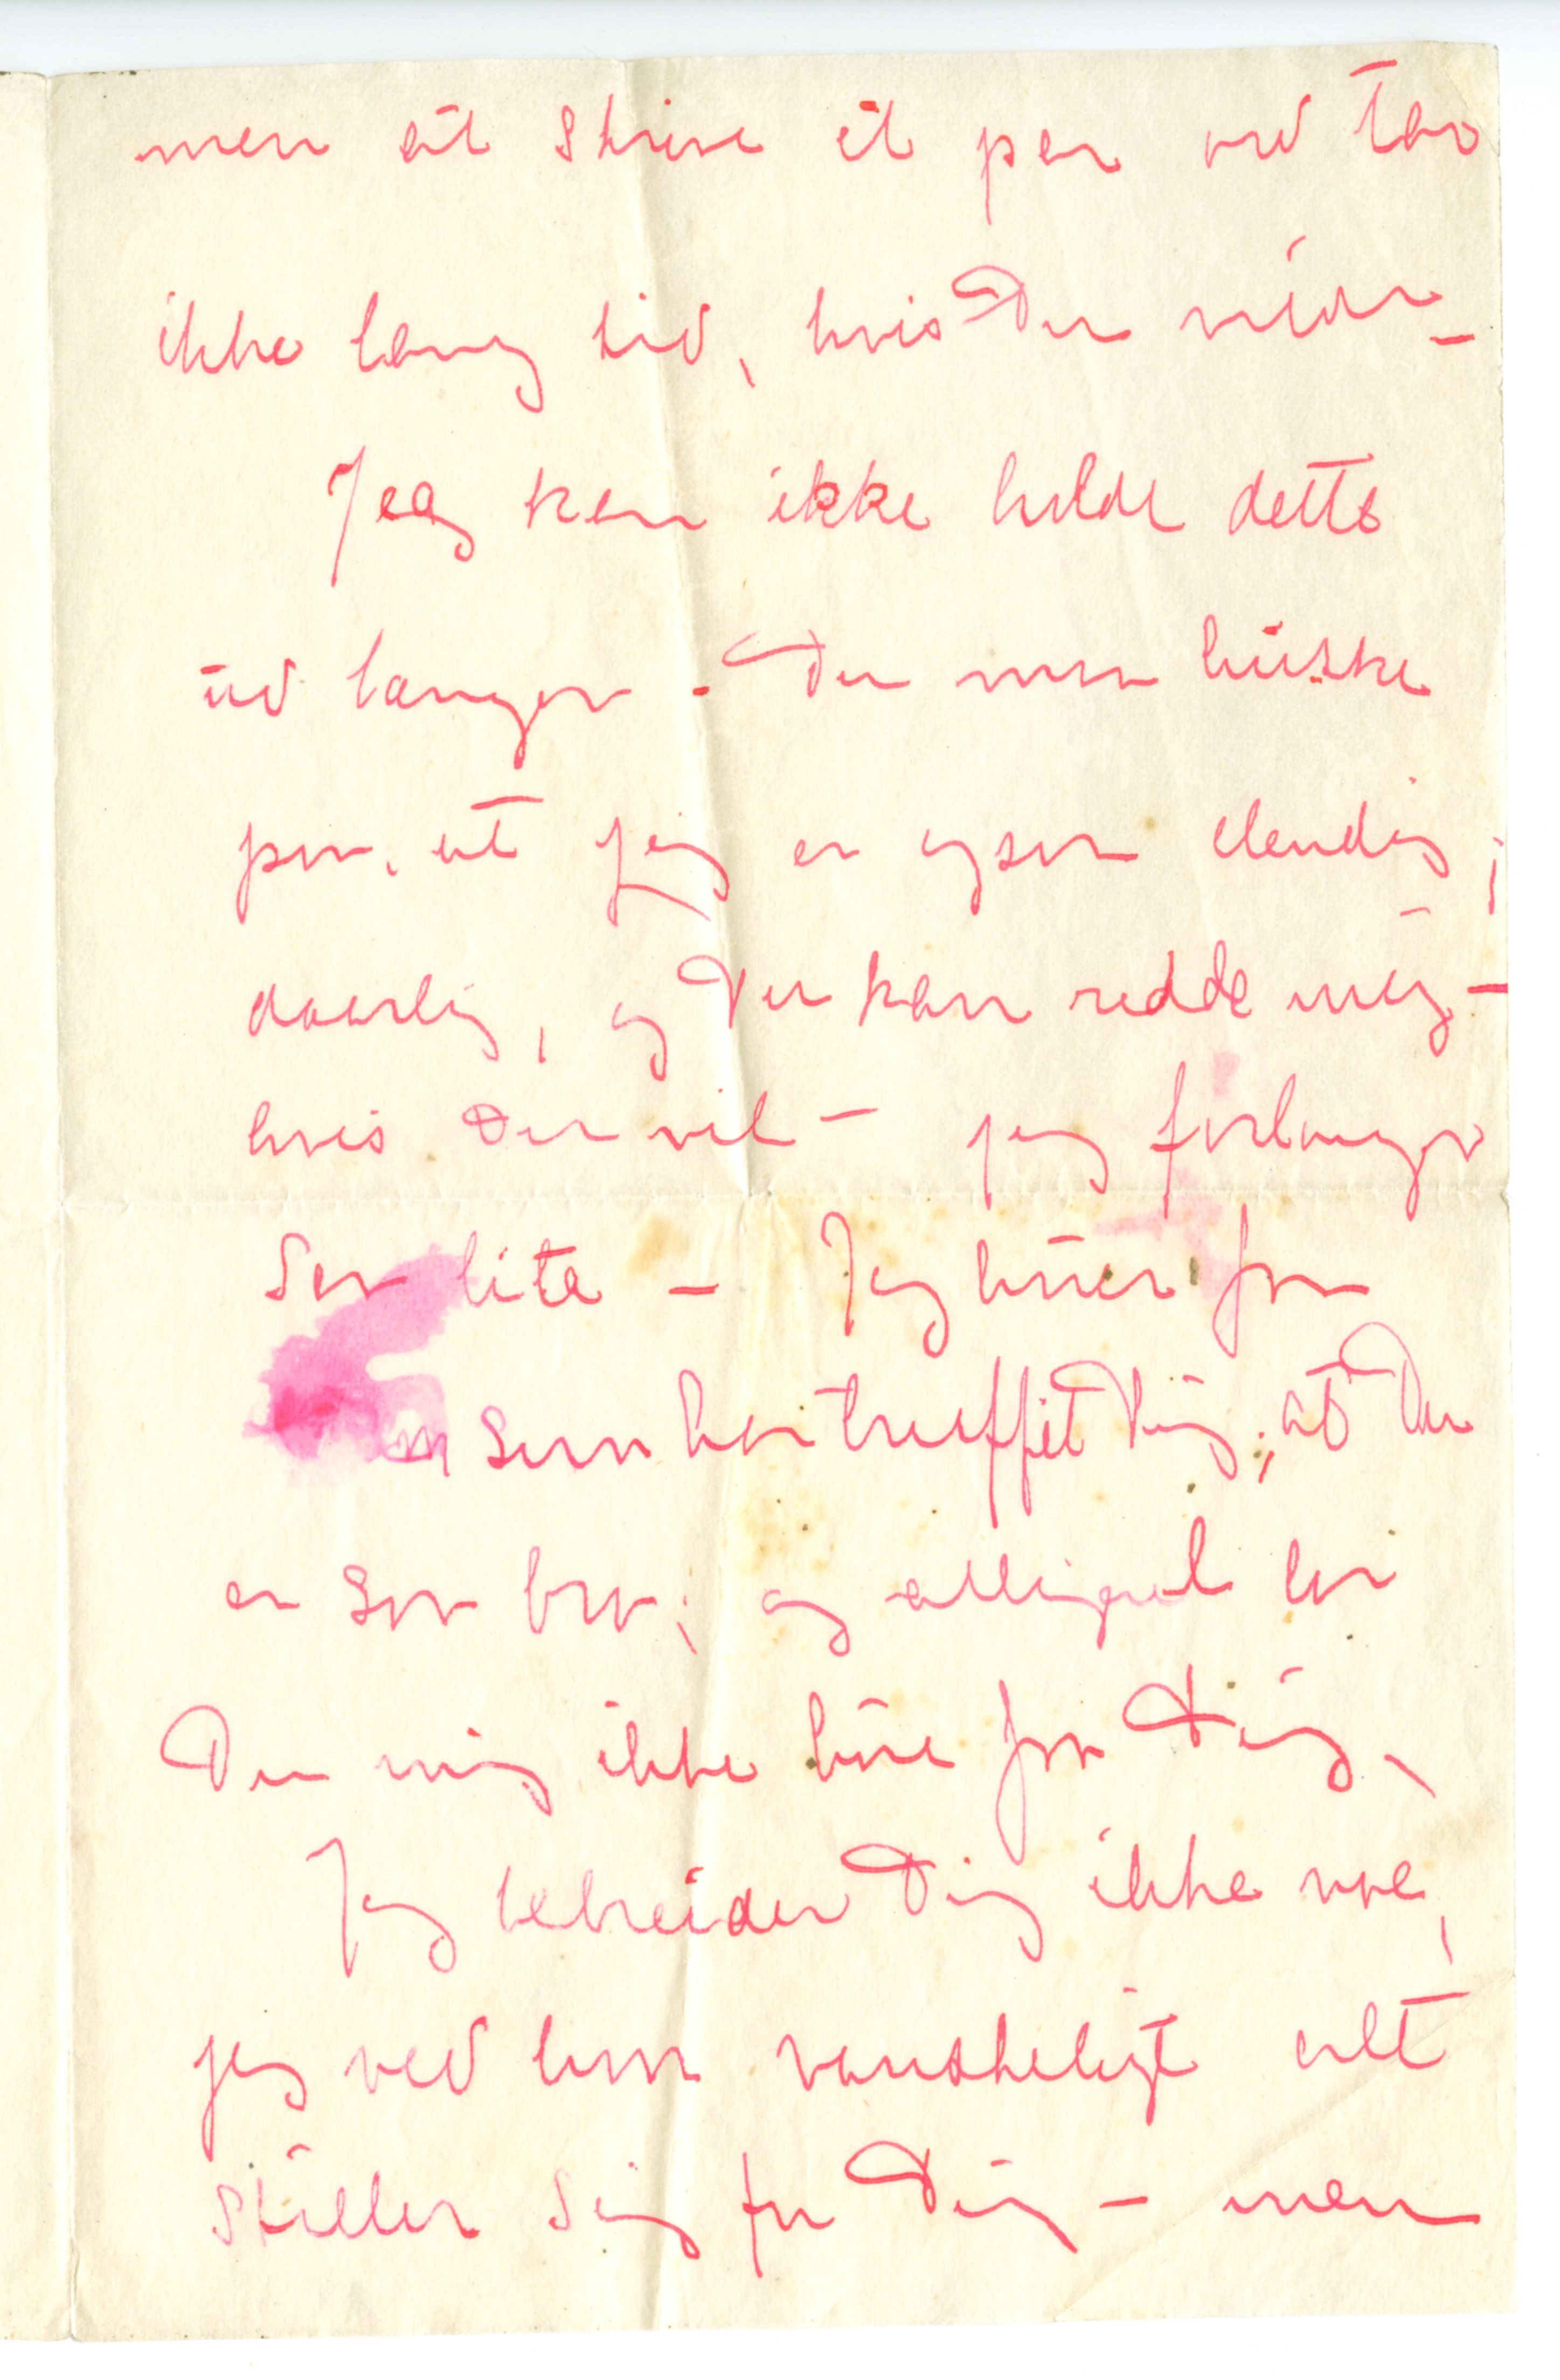 men at skrive et par ord tar
ikke lang tid, hvis Du vidste –
Jeg kan ikke holde dette
ud længer - Du maa huske
paa, at jeg er ogsaa elendig,
daarlig, og Du kan redde mig –
hvis Du vil – jeg forlanger
saa lite – Jeg hører fra
en som har truffet Dig, at Du
er saa bra, og alligevel lar
Du mig ikke høre fra Dig,
Jeg bebreider Dig ikke noe,
jeg ved hvor vanskeligt alt
stiller sig for Dig – men